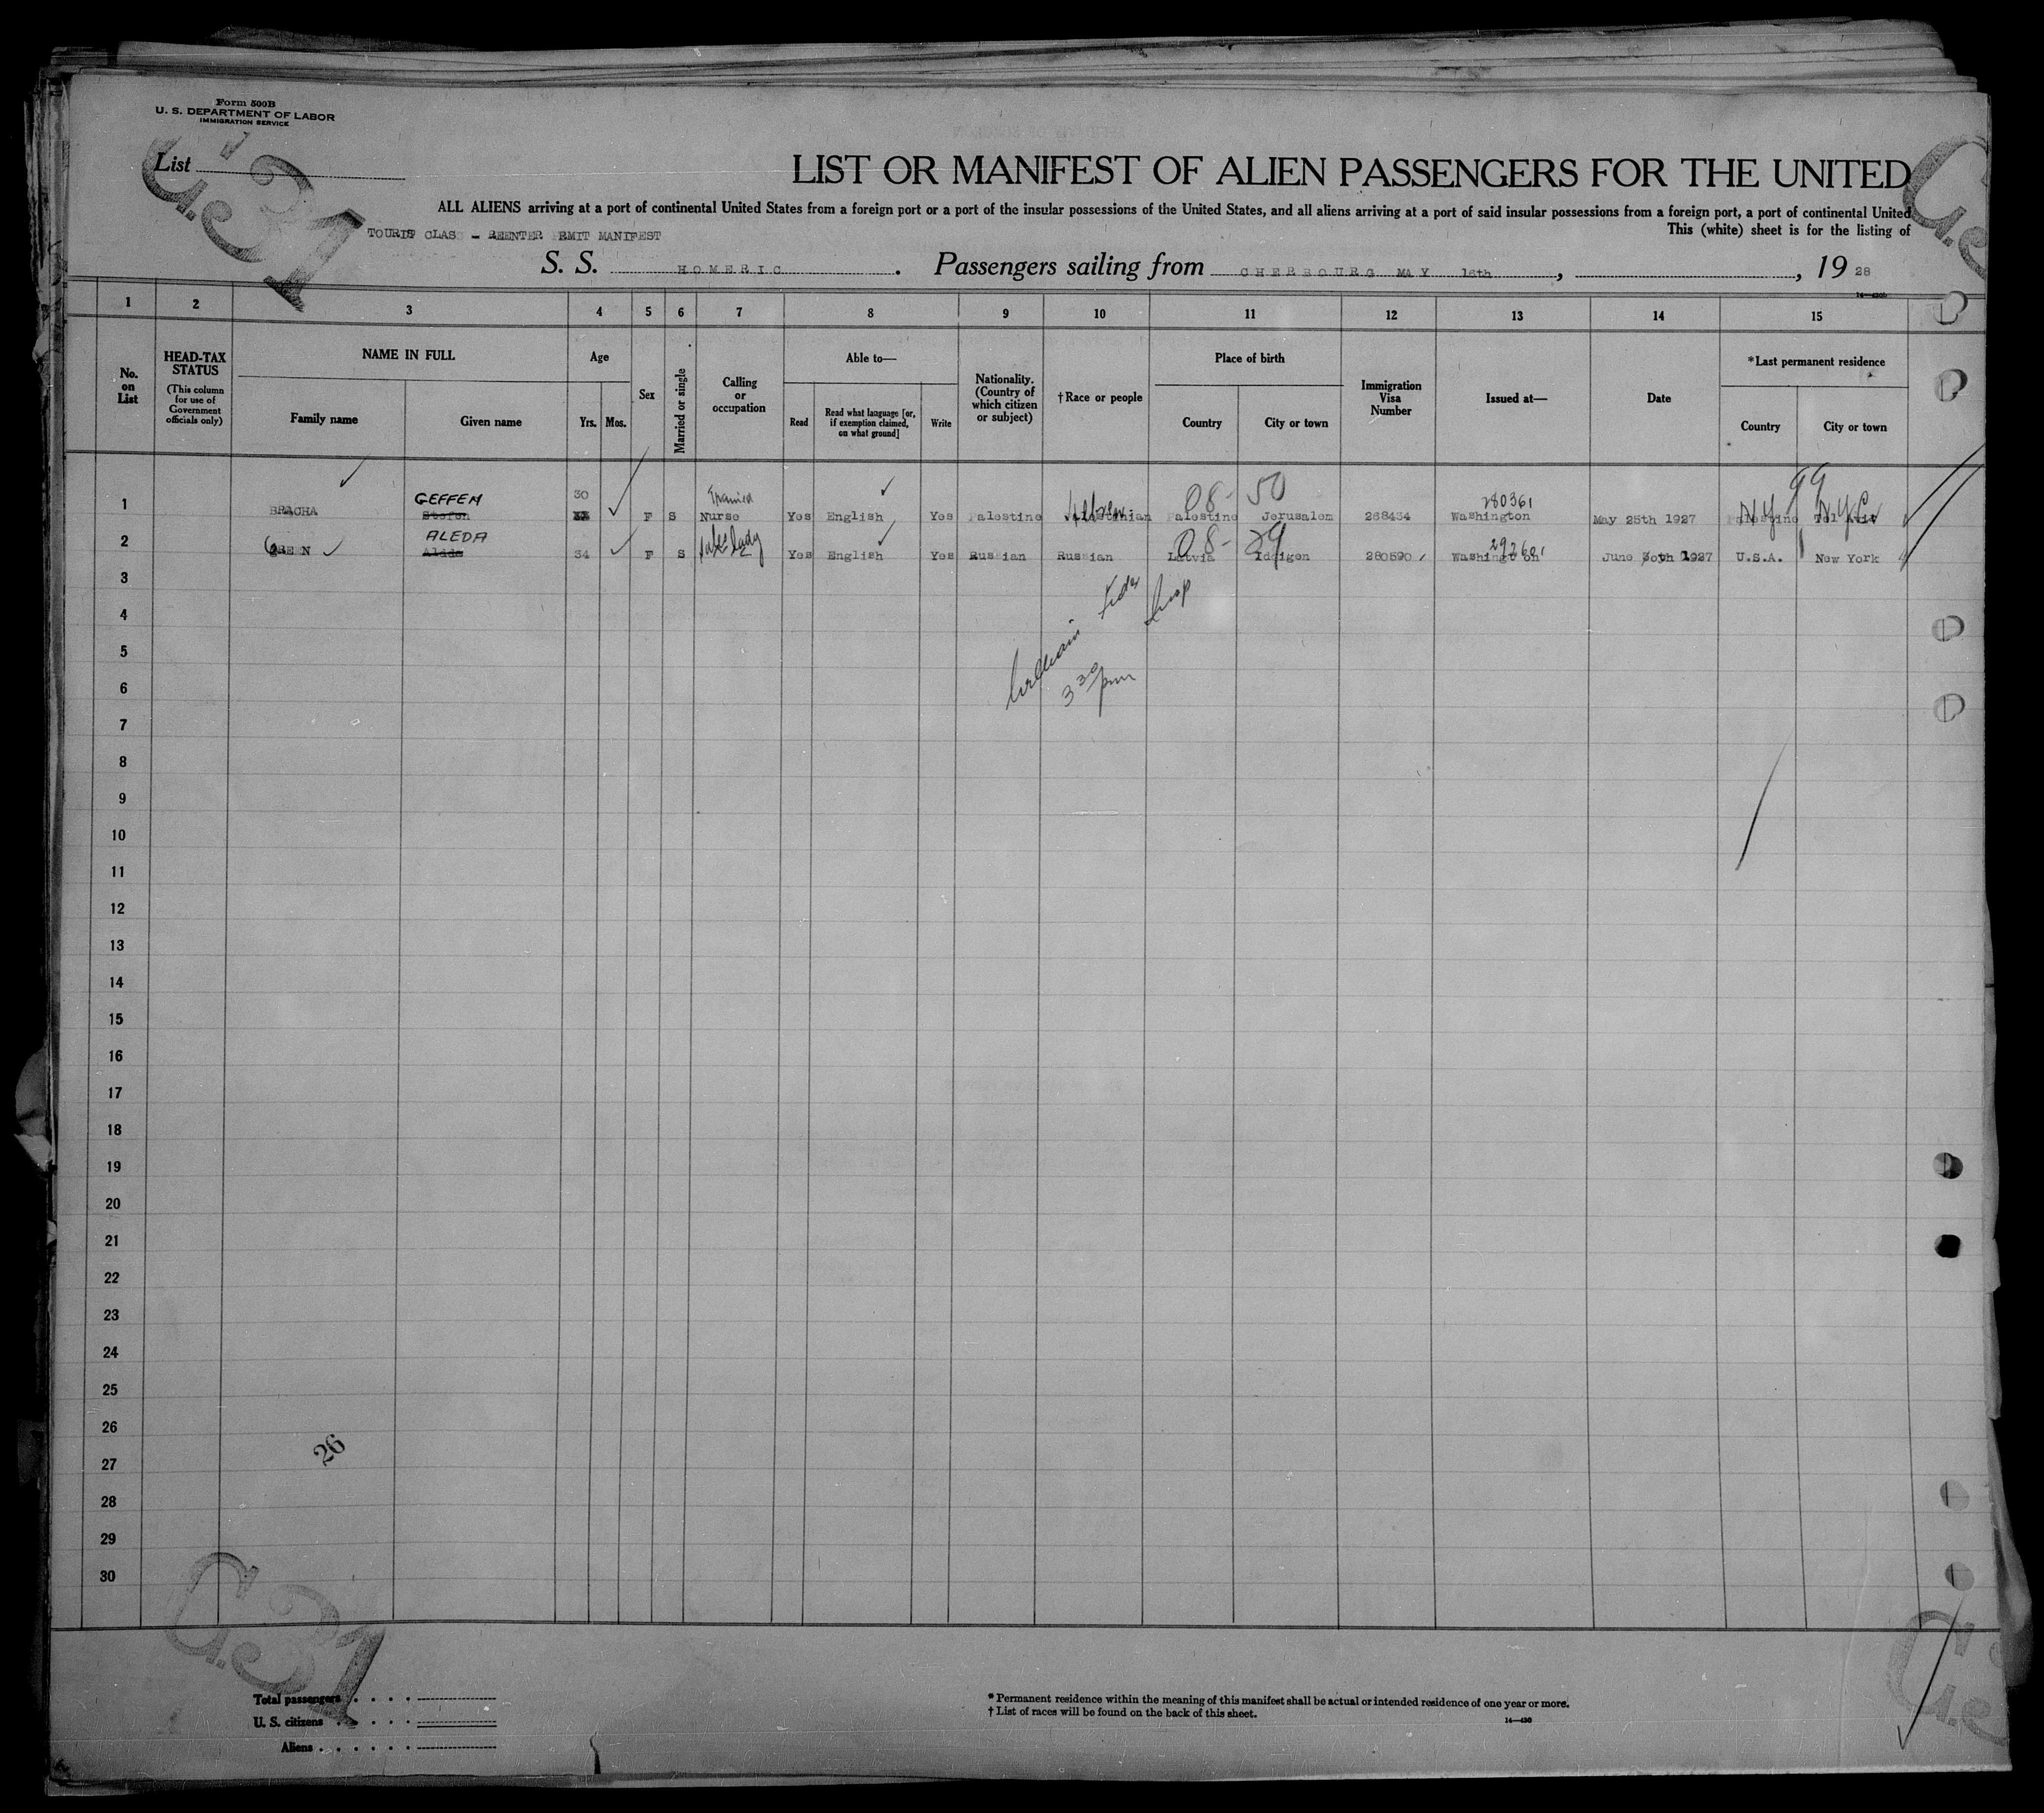 Form 500B
U. S. DEPARTMENT OF LABOR
IMMIGRATION SERVICE
List
LIST OR MANIFEST OF ALIEN PASSENGERS FOR THE UNITED
ALL ALIENS arriving at a port of continental United States from a foreign port or a port of the insular possessions of the United States, and all aliens arriving at a port of said insular possessions from a foreign port, a port of continental United
This (white) sheet is for the listing of
TOURIS CLAS - REENTER RMIT MANIFEST
S. S. HOMERIC. Passengers sailing from CHERBOURG MAY 16th, , 19 28
1 2 3 4 5 6 7 8 9 10 11 12 13 14 15
No. on List
HEAD-TAX STATUS
(This column for use of Government officials only)
NAME IN FULL
Family name
Given name
Age
Yrs.
Mos.
Sex
Married or single
Calling or occupation
Able to—
Read
Read what language [or, if exemption claimed, on what ground]
Write
Nationality. (Country of which citizen or subject)
†Race or people
Place of birth
Country
City or town
Immigration Visa Number
Issued at—
Date
*Last permanent residence
Country
City or town
GEFFEN 30 08- 50 280361 99
1 BRACHA Stefen F S Nurse Yes English Yes Palestine Hebrew Palestine Jerusalem 268434 Washington May 25th 1927 NY NYC
ALEDA 08- 29
2 GREEN Alide 34 F S saleslady Yes English Yes Russian Russian Latvia 280590 Washington June 1927 U.S.A. New York
3
4
5 William
6 3 30 pm
7
8
9
10
11
12
13
14
15
16
17
18
19
20
21
22
23
24
25
26
27
28
29
30
26
G.31
Total passengers
U. S. citizens
Aliens
* Permanent residence within the meaning of this manifest shall be actual or intended residence of one year or more.
† List of races will be found on the back of this sheet.
14—430